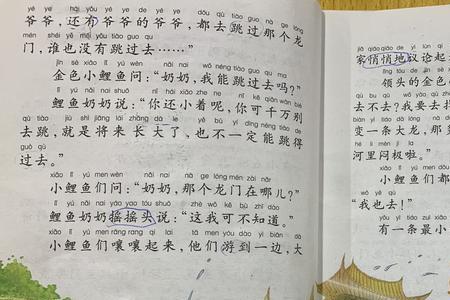 yé ye hái yǒu yé ye de yé ye dōu qù tiào guo nà ge lóng
爷爷，还有爷爷的爷爷，都去跳过那个龙
mén shéi yě méi yǒu tiào guo qu
门，谁也没有跳过去……”
jīn sè xiǎo lǐ yú wèn nǎi nai wǒ néng tiào guo qu ma
金色小鲤鱼问：“奶奶，我能跳过去吗？”
lǐ yú nǎi nai shuō nǐ hái xiǎo zhe ne nǐ kě qiān wàn bié
鲤鱼奶奶说：“你还小着呢，你可千万别
qù tiào jiù shì jiāng lái zhǎng dà le yě bù yí dìng néng tiào de
去跳，就是将来长大了，也不一定能跳得
guò qù
过去。”
xiǎo lǐ yú men wèn nǎi nai nà ge lóng mén zài nǎr
小鲤鱼们问：“奶奶，那个龙门在哪儿？”
lǐ yú nǎi nai yáo yao tóu shuō zhè wǒ kě bù zhī dào
鲤鱼奶奶摇摇头说：“这我可不知道。”
xiǎo lǐ yú men rāng rang qi lai tā men yóu dào yì biān dà
小鲤鱼们嚷嚷起来，他们游到一边，大
jiā qiāo qiāo de yì lùn qi
家悄悄地议论起
lǐng tóu de jīn
领头的金色
qù bu qù wǒ yào qù
去不去？我要去
biàn yì tiáo dà lóng nà
变一条大龙，那
hé li mèn jí la
河里闷极啦。”
xiǎo lǐ yú men dōu
小鲤鱼们都
wǒ yě qù
“我也去！”
yǒu yì tiáo zuì xiǎo
有一条最小